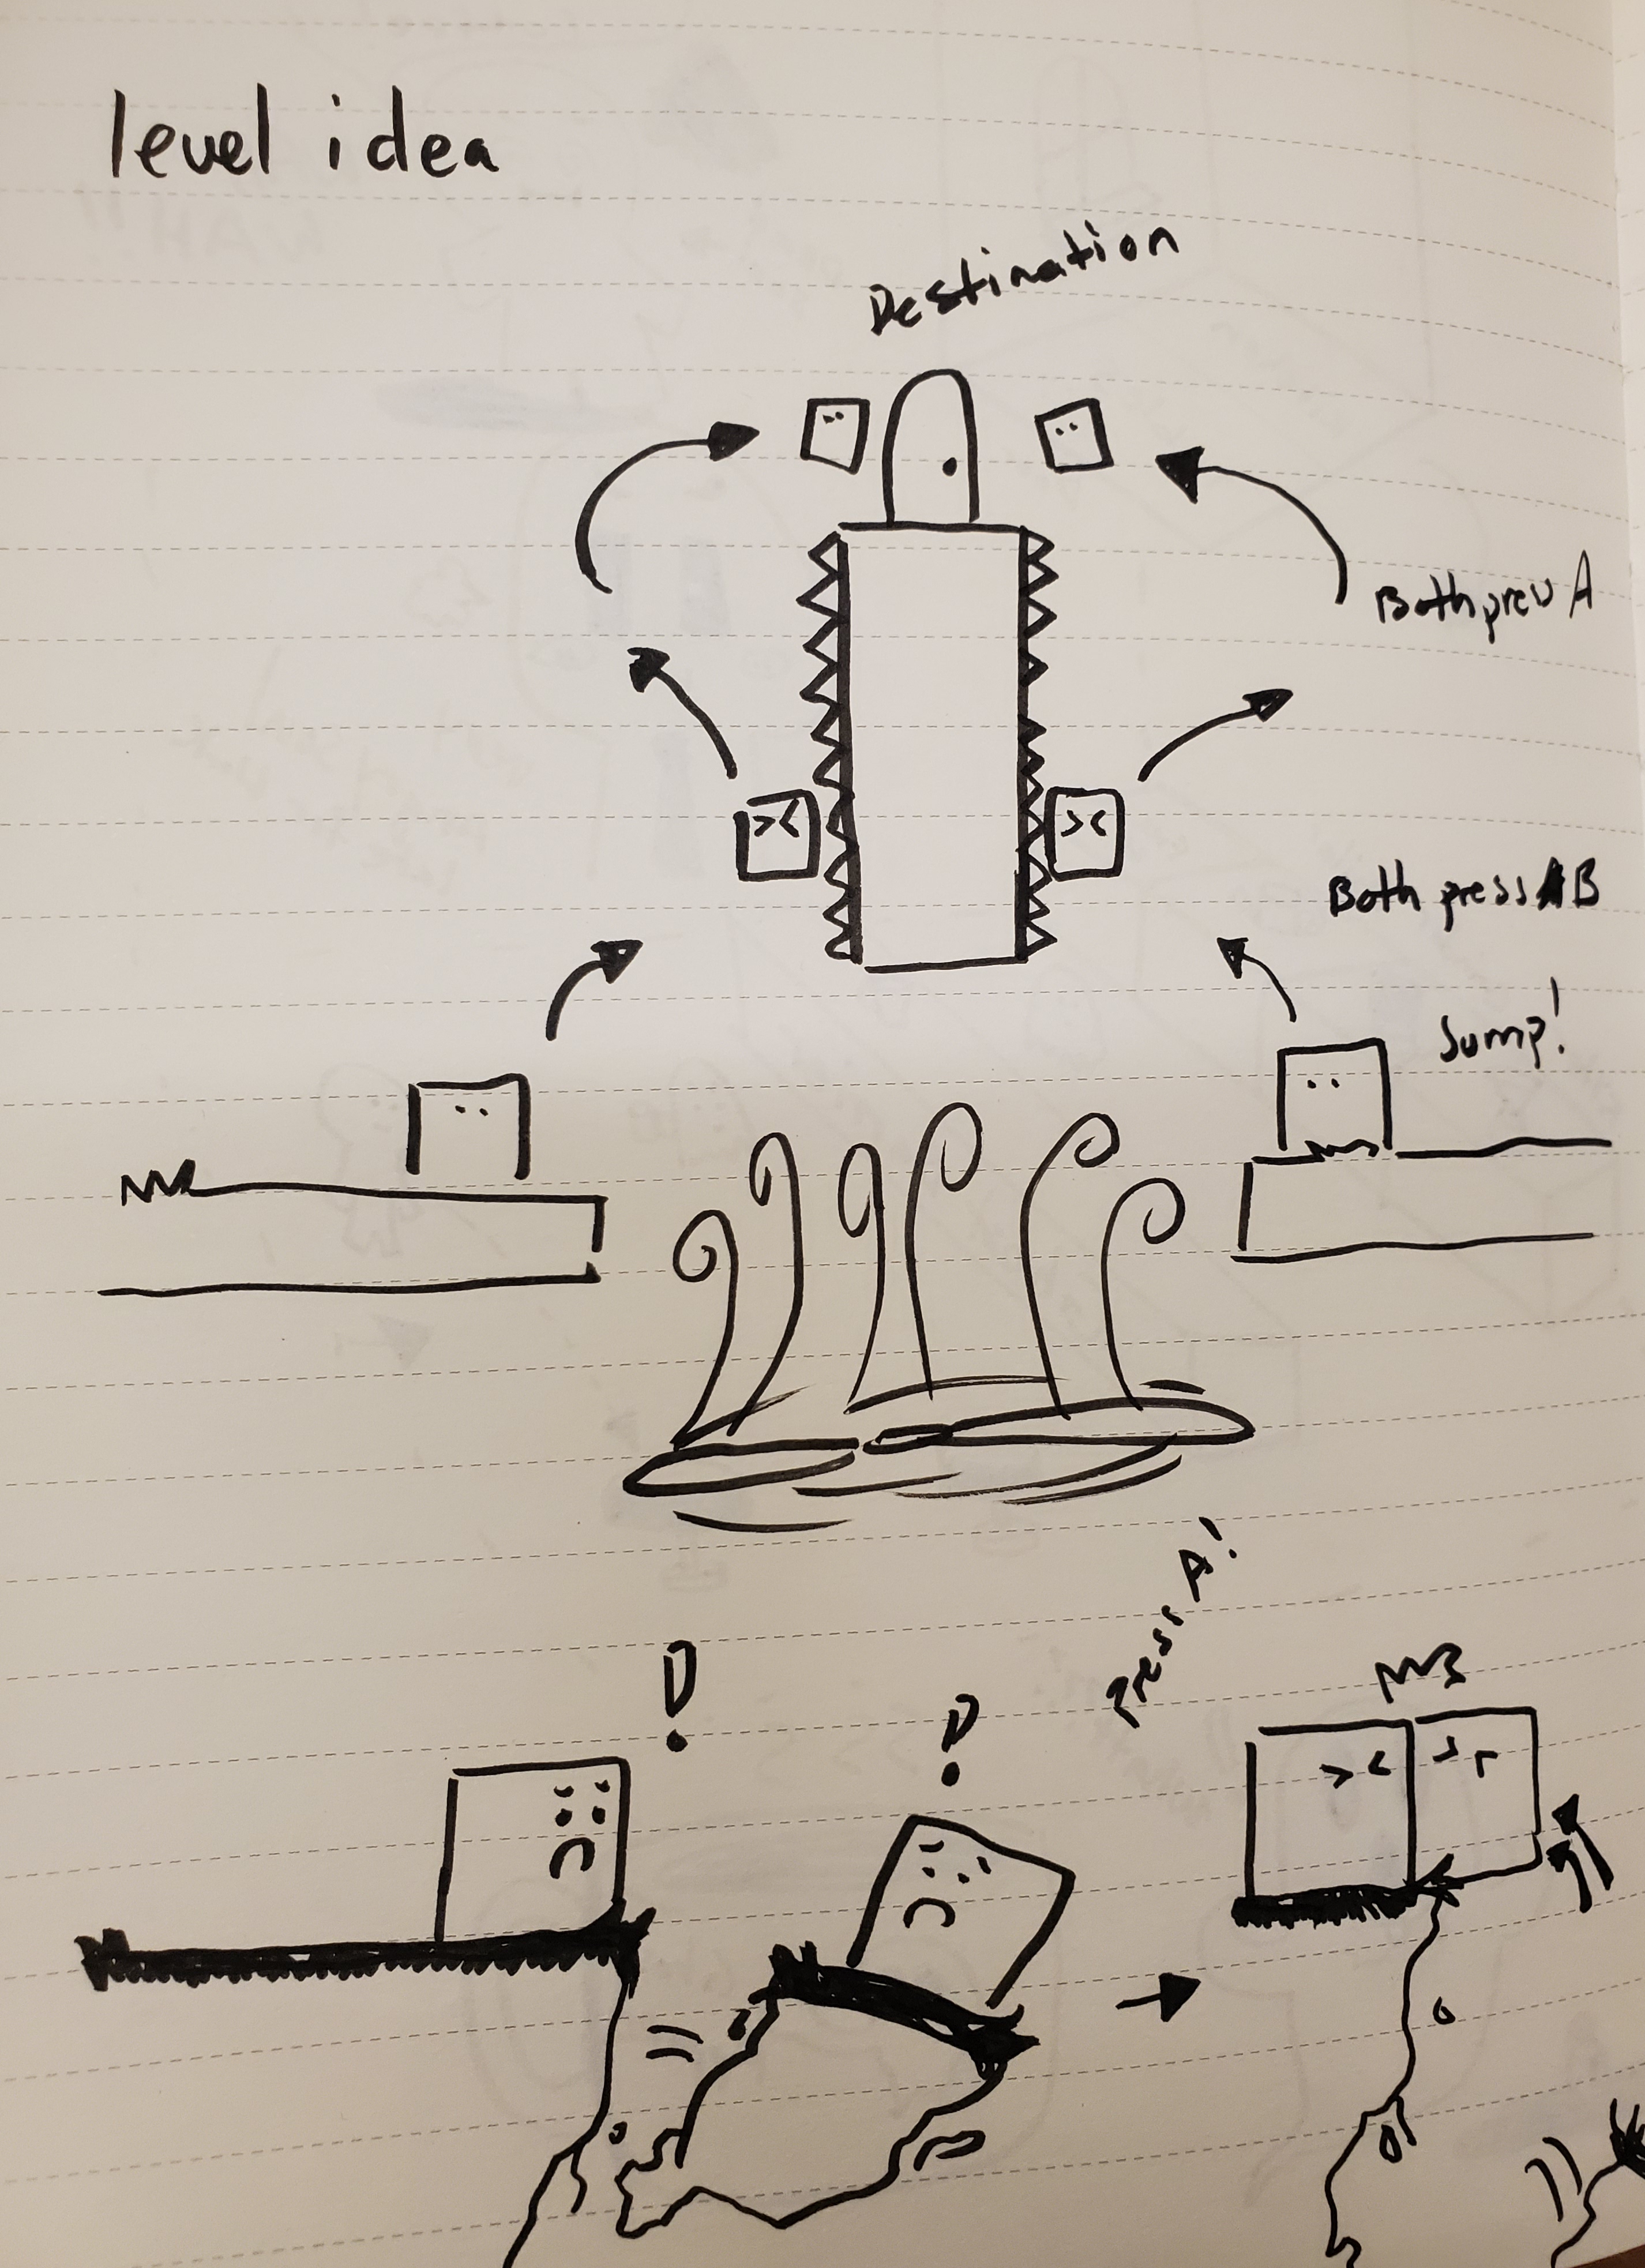 level idea
Destination
Both press A
Both press B
Jump!
!
?
Press A!